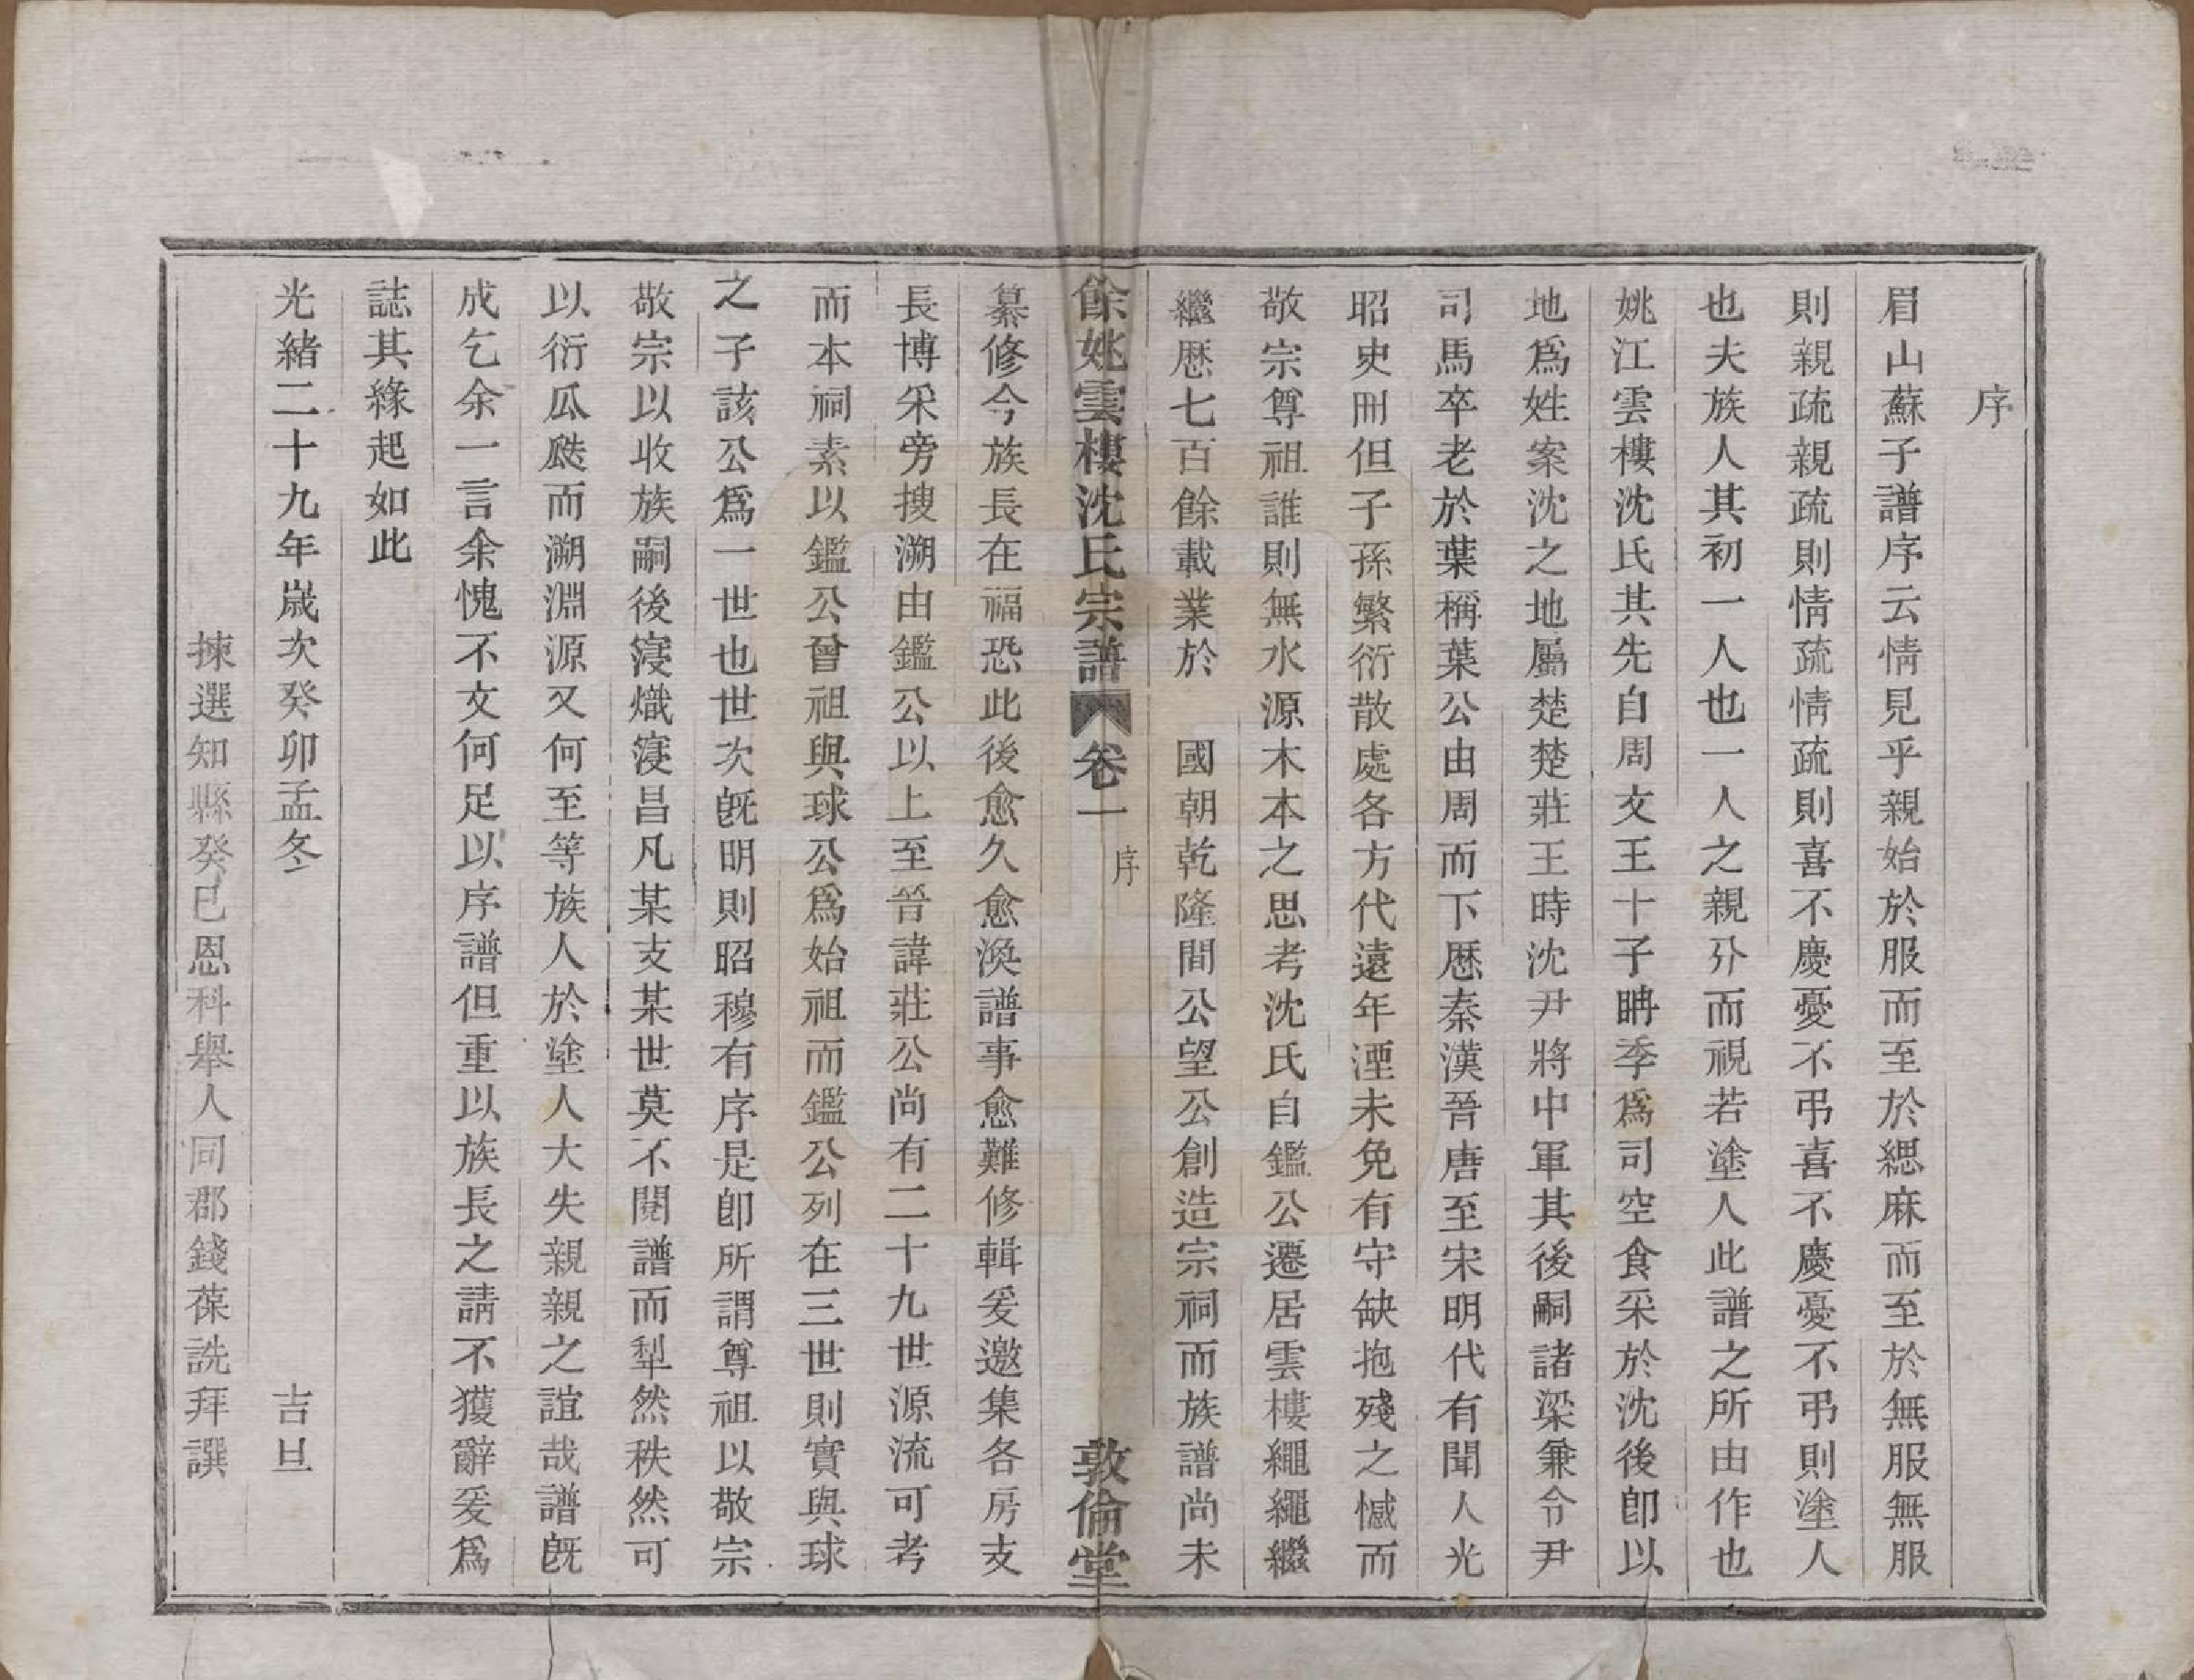 序
眉山蘇子譜序云情見乎親始於服而至於緦麻而至於無服無服
則親疏親疏則情疏情疏則喜不慶憂不弔喜不慶憂不弔則塗人
也夫族人其初一人也一人之親分而視若塗人此譜之所由作也
姚江雲樓沈氏其先自周文王十子聃季爲司空食采於沈後卽以
地爲姓案沈之地屬楚楚莊王時沈尹將中軍其後嗣諸梁兼令尹
司馬卒老於葉稱葉公由周而下歷秦漢晉唐至宋明代有聞人光
昭史冊但子孫繁衍散處各方代遠年湮未免有守缺抱殘之憾而
敬宗尊祖誰則無水源木本之思考沈氏自鑑公遷居雲樓繩繩繼
繼歷七百餘載業於　國朝乾隆間公望公創造宗祠而族譜尚未
餘姚雲樓沈氏宗譜　卷一　序　敦倫堂
纂修今族長在福恐此後愈久愈渙譜事愈難修輯爰邀集各房支
長博采旁搜溯由鑑公以上至晉諱莊公尚有二十九世源流可考
而本祠素以鑑公曾祖與球公爲始祖而鑑公列在三世則實與球
之子該公爲一世也世次旣明則昭穆有序是卽所謂尊祖以敬宗
敬宗以收族嗣後寖熾寖昌凡某支某世莫不閱譜而犁然秩然可
以衍瓜瓞而溯淵源又何至等族人於塗人大失親親之誼哉譜旣
成乞余一言余愧不文何足以序譜但重以族長之請不獲辭爰爲
誌其緣起如此
光緒二十九年歲次癸卯孟冬　吉旦
揀選知縣癸巳恩科舉人同郡錢葆詵拜譔